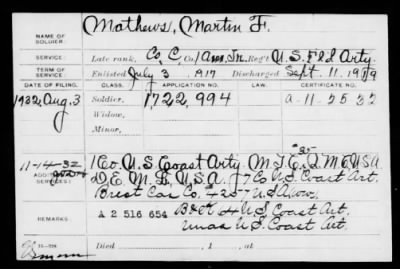 NAME OF SOLDIER: Mathews, Martin F.
SERVICE: Late rank, Co. C, 1 Am. Tn. Reg't U.S. Fld Arty.
TERM OF SERVICE: Enlisted July 3, 1917 Discharged Sept. 11, 1919
DATE OF FILING. CLASS. APPLICATION NO. CERTIFICATE NO.
1932, Aug. 3 Soldier, 1,722,994 a-11-25-32
Widow,
Minor,
11-14-32 1 Co. U.S. Coast Arty. M.T.E. & M.C. U.S.A.
ADDITIONAL SERVICES: D.E.M.L. U.S.A. 7 Co. U.S. Coast Art.
Brest Cas. Co. #
REMARKS: A 2 516 654 U.S. Coast Art.
Unas U.S. Coast Art.
Died , 1 , at